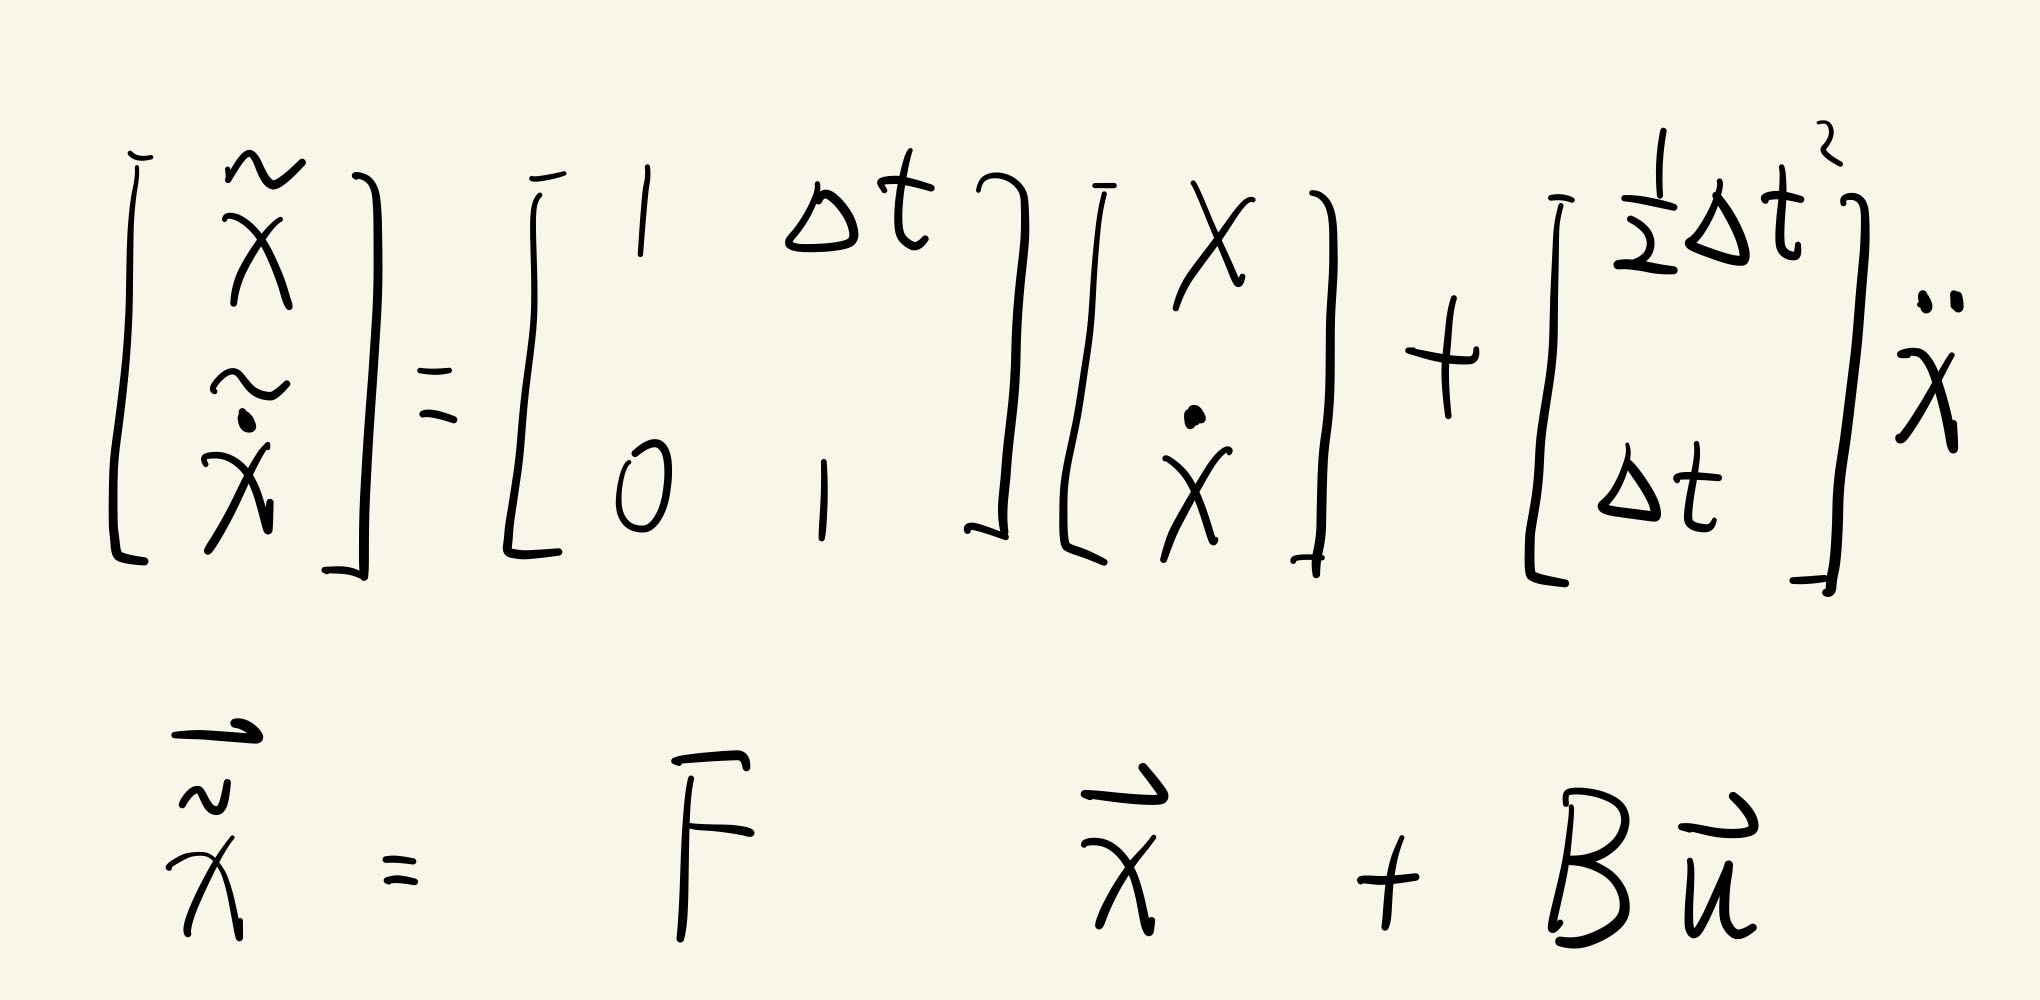 [x̃ ẋ̃] = [1 Δt 0 1] [x ẋ] + [½Δt² Δt] ẍ
x̃⃗ = F x⃗ + B u⃗